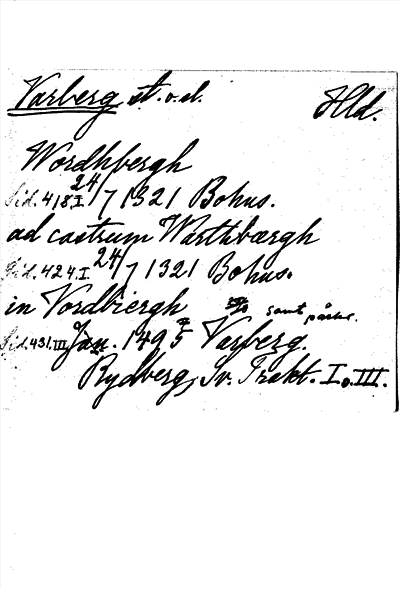 Varberg st. o. sl. Hld.
Wordhbergh
Sid. 418 I. 24/7 1321 Bohus.
ad castrum Warthbærgh
Sid. 424. I. 24/7 1321 Bohus.
in Vordbiergh samt påskr.
Sid. 431. III Jan. 1495 Varberg.
Rydberg, Sv. Trakt. I o. III.